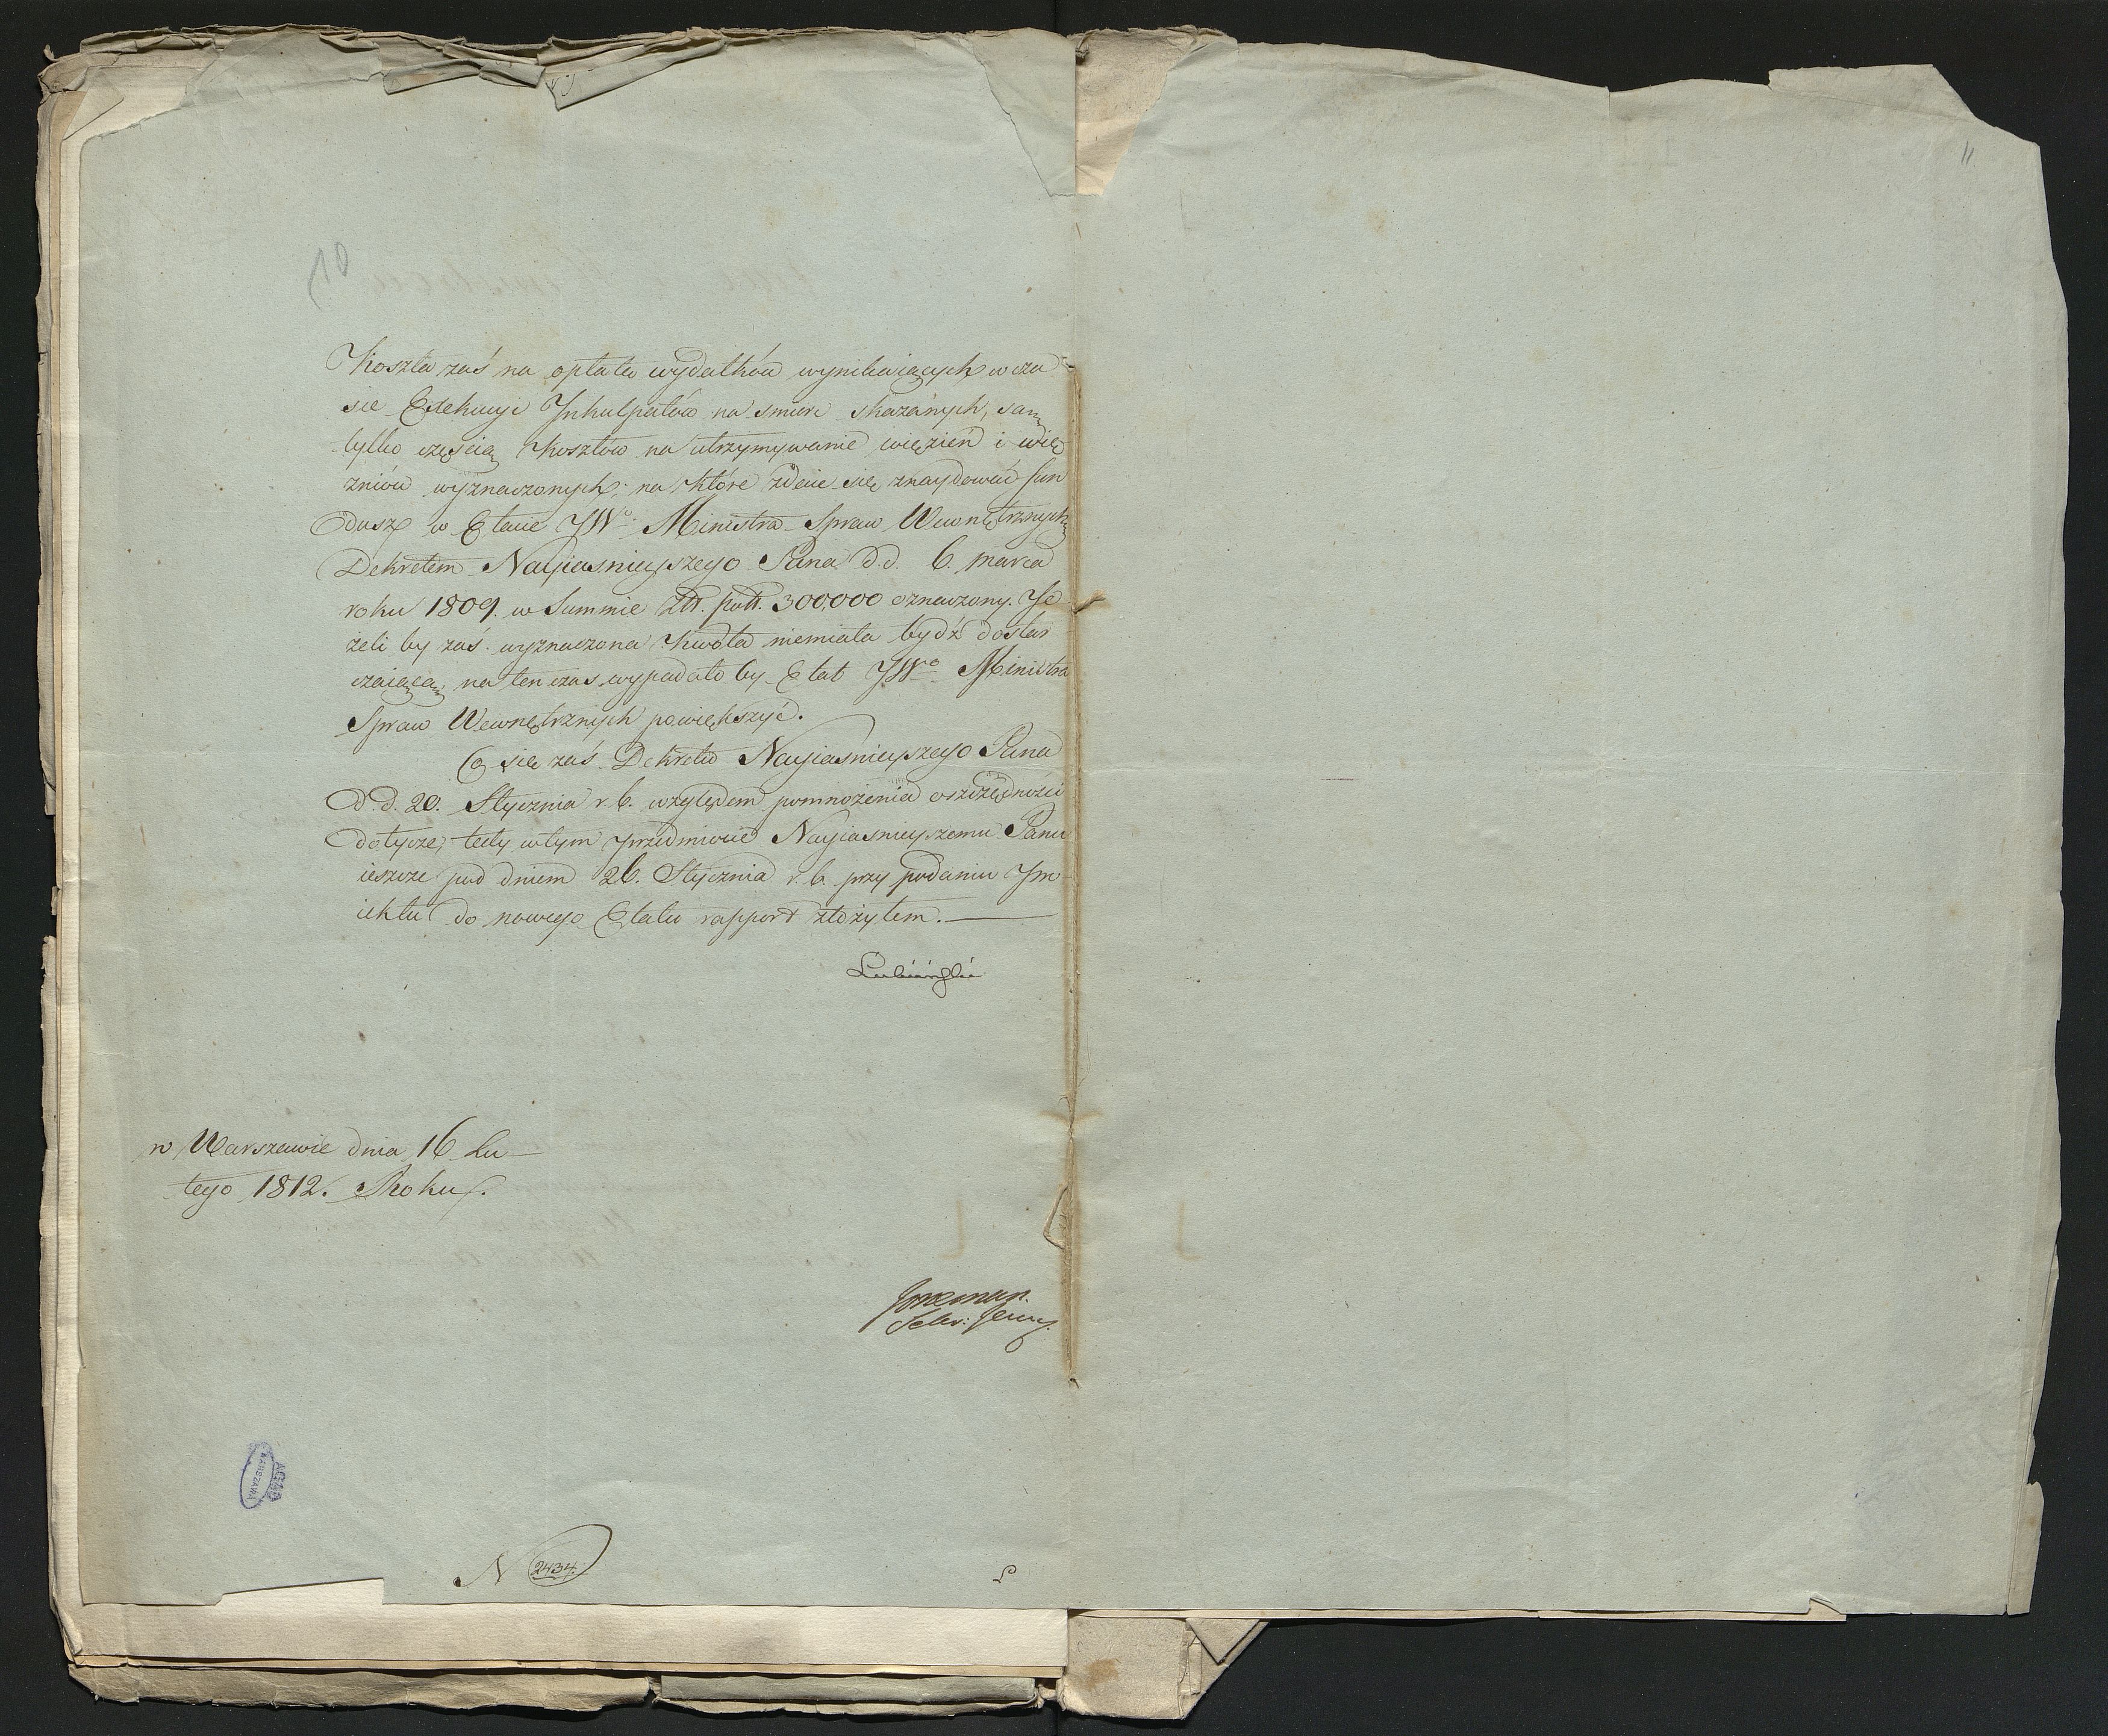 11
10
Koszta zaś na opłatę wydatków wynikaiących w cza
sie Exekucyi Inkulpatów na smierć skazanych, są
tylko częścią Kosztów na utrzymywanie więzień i wię
zniów wyznaczonych; na które zdaie się znaydować fun
dusz w Etacie JWo Ministra Spraw Wewnętrznych
Dekretem Nayiasnieyszego Pana d.d. 6. marca
roku 1809. w Summie Złł. poll. 300,000 oznaczony. Je
żeli by zaś wyznaczona Kwota niemiała bydź dostar
czaiącą, na ten czas wypadało by Etat JWo Ministra
Spraw Wewnętrznych powiększyć.
Co się zaś Dekretu Nayiasnieyszego Pana
d.d. 20. Stycznia r. b. względem pomnożenia oszczędności
dotycze, tedy w tym przedmiocie Nayiasnieyszemu Panu
ieszcze pod dniem 26. Stycznia r. b. przy podaniu Pro
iektu do nowego Etatu rapport złożyłem.
Łubieński
w Warszawie dnia 16 Lu
tego 1812. Roku.
Sekr:
AGAD
WARSZAWA
N 2434